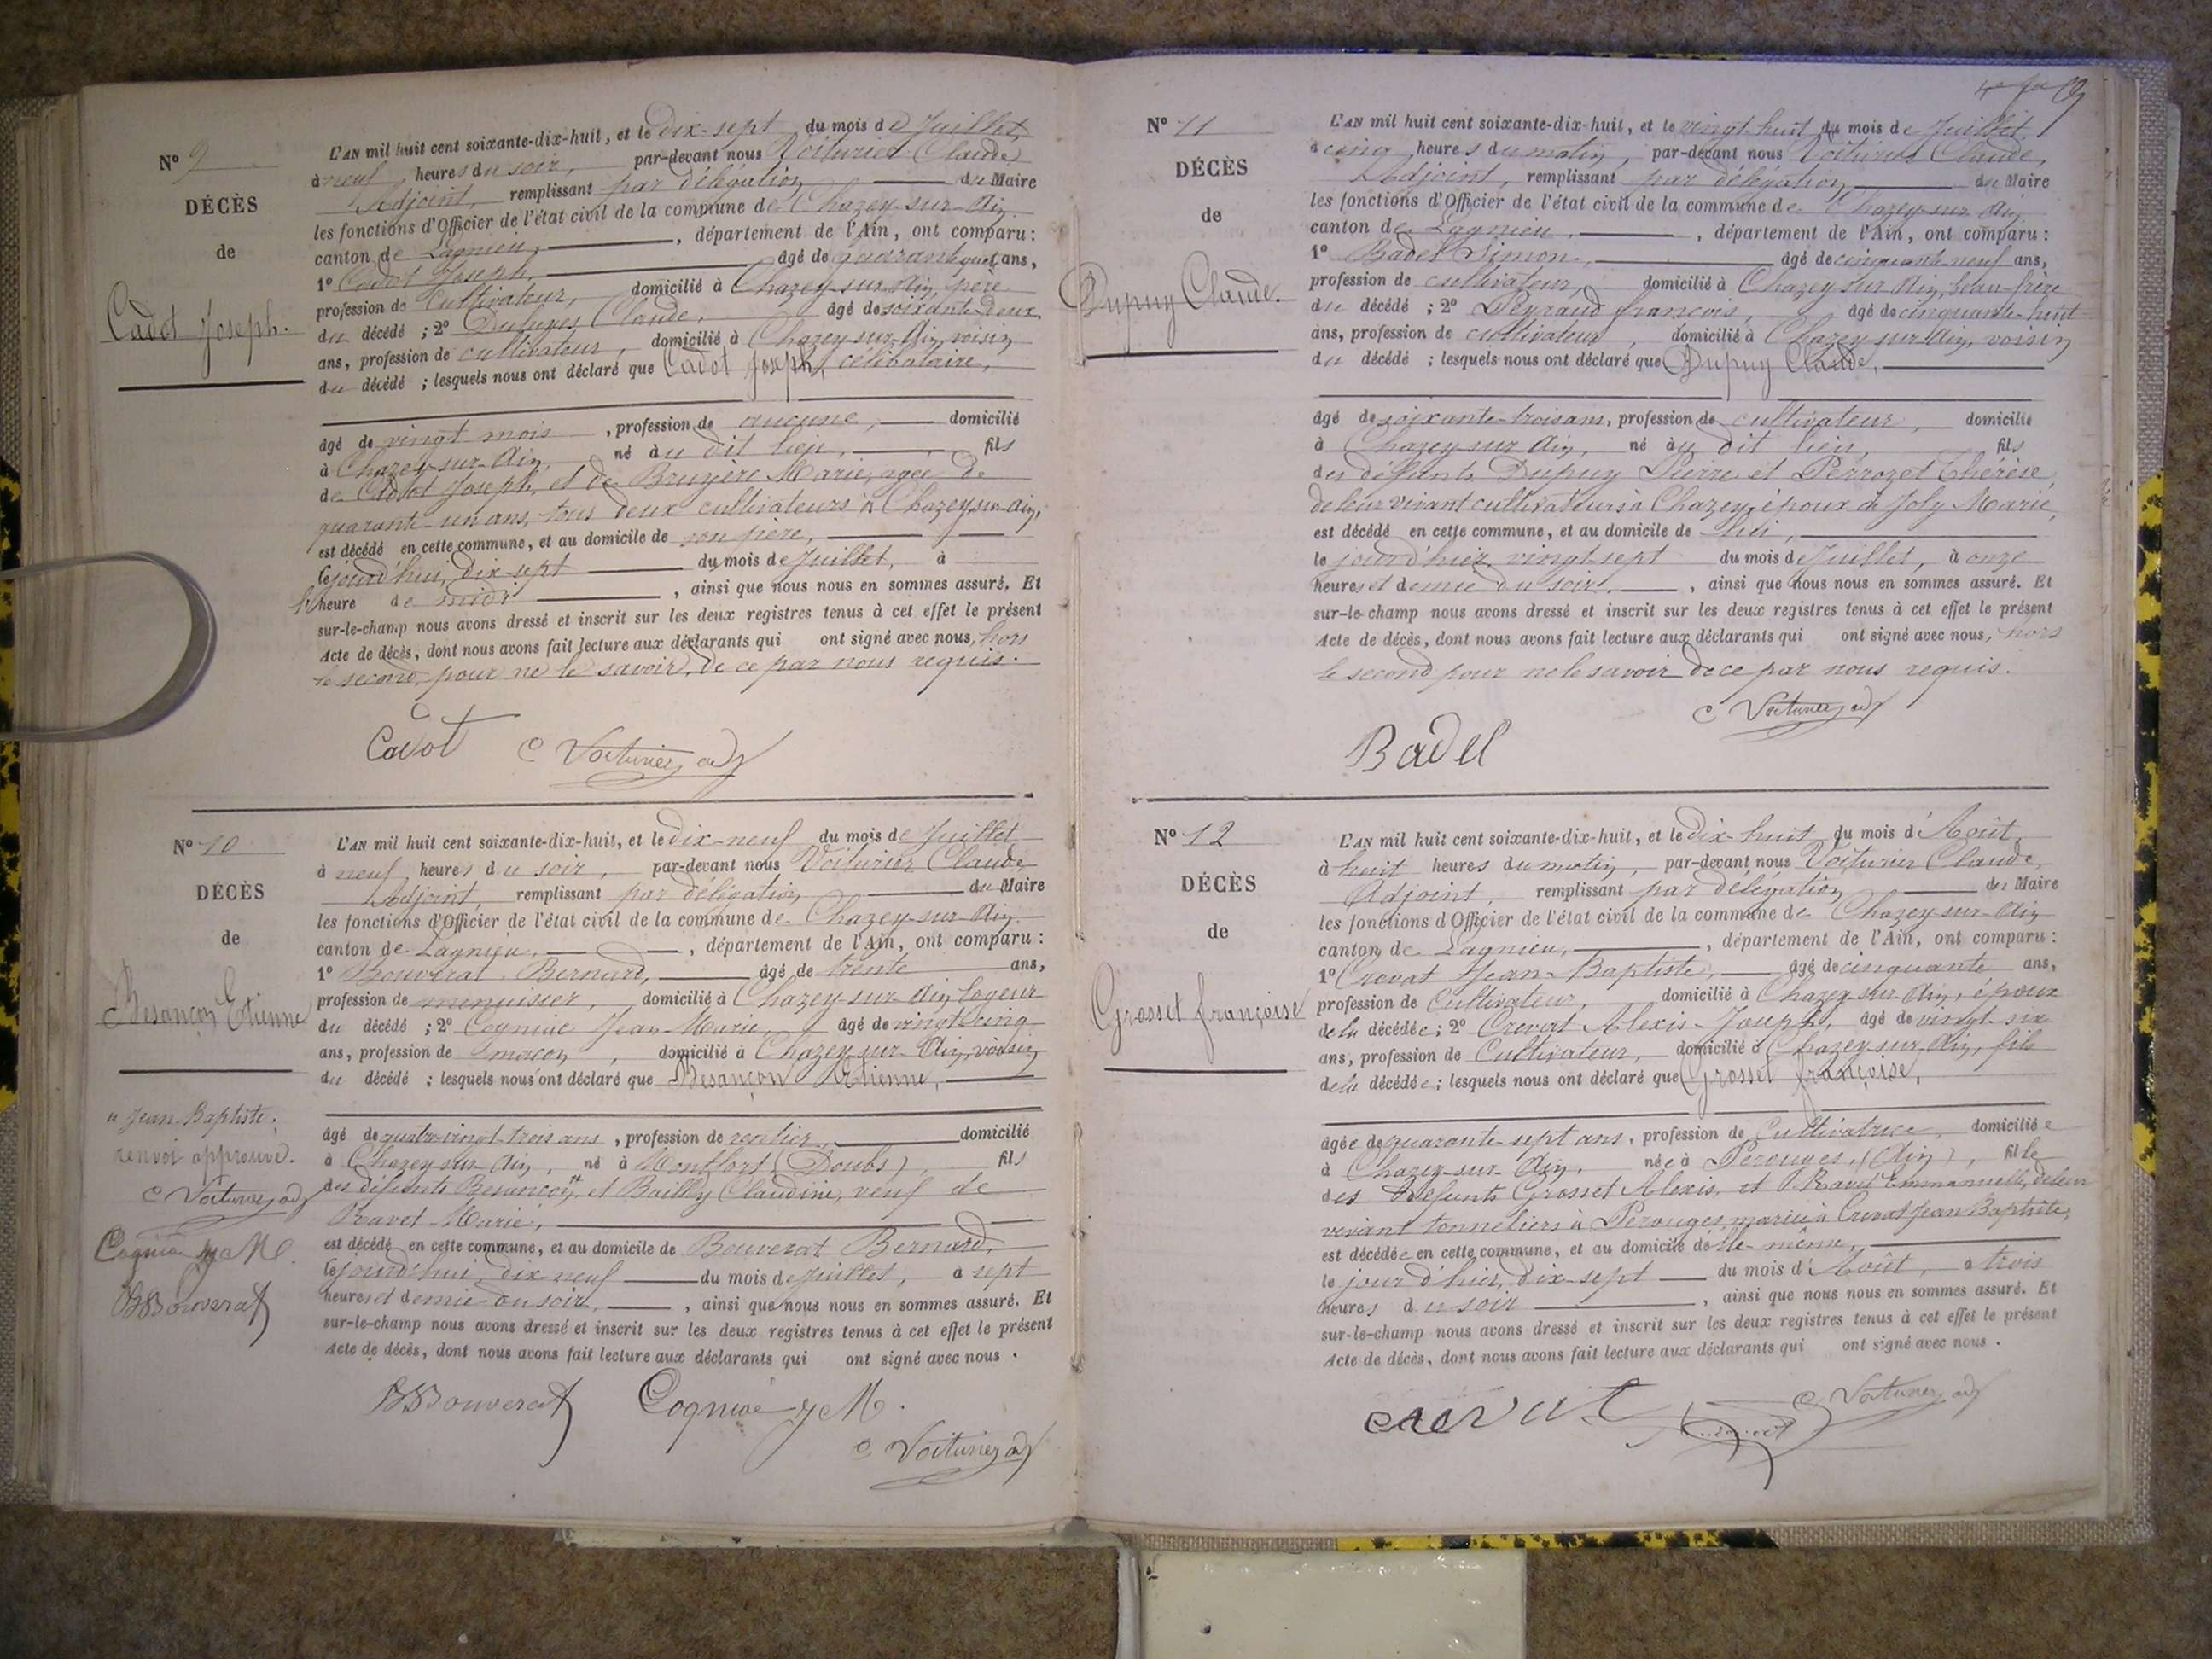 N° 9
DÉCÈS
de
Cadot Joseph.
L'AN mil huit cent soixante-dix-huit, et le dix-sept du mois de Juillet,
à neuf heures du soir, par-devant nous Voiturier Claude
Adjoint, remplissant par délégation du Maire
les fonctions d'Officier de l'état civil de la commune de Chazey-sur-Ain
canton de Lagnieu, département de l'Ain, ont comparu :
1° Cadot Joseph, âgé de quarante ans,
profession de Cultivateur, domicilié à Chazey-sur-Ain, père
du décédé ; 2° Claude, âgé de soixante-deux
ans, profession de cultivateur, domicilié à Chazey-sur-Ain, voisin
du décédé ; lesquels nous ont déclaré que Cadot Joseph, célibataire,
âgé de vingt mois, profession de aucune, domicilié
à Chazey-sur-Ain, né à u dit lieu, fils
de Cadot Joseph, et de Bruyère Marie, agée de
quarante-un ans, tous deux cultivateurs à Chazey-sur-Ain,
est décédé en cette commune, et au domicile de son père,
le jourd'hui, dix-sept du mois de Juillet, à
l'heure de midi, ainsi que nous nous en sommes assuré. Et
sur-le-champ nous avons dressé et inscrit sur les deux registres tenus à cet effet le présent
Acte de décès, dont nous avons fait lecture aux déclarants qui ont signé avec nous, hors
le second, pour ne le savoir, de ce par nous requis.
Cadot C Voiturier, adj
N° 10
DÉCÈS
de
Besançon Etienne
L'AN mil huit cent soixante-dix-huit, et le dix-neuf du mois de Juillet
à neuf heures du soir, par-devant nous Voiturier Claude
Adjoint, remplissant par délégation du Maire
les fonctions d'Officier de l'état civil de la commune de Chazey-sur-Ain
canton de Lagnieu, département de l'Ain, ont comparu :
1° Bouverat Bernard, âgé de trente ans,
profession de menuisier, domicilié à Chazey-sur-Ain, logeur
du décédé ; 2° Cogniac Jean-Marie, âgé de vingt-cinq
ans, profession de maçon, domicilié à Chazey-sur-Ain, voisin
du décédé ; lesquels nous ont déclaré que Besançon Etienne,
" Jean-Baptiste.
renvoi approuvé.
C Voiturier, adj
Cogniac J M.
B Bouverat
âgé de quatre-vingt-trois ans, profession de rentier, domicilié
à Chazey-sur-Ain, né à Montfort (Doubs), fils
des défunts Besançon " et Bailly Claudine, veuf de
Ravet Marie,
est décédé en cette commune, et au domicile de Bouverat Bernard,
le jourd'hui, dix-neuf du mois de Juillet, à sept
heures et demie du soir, ainsi que nous nous en sommes assuré. Et
sur-le-champ nous avons dressé et inscrit sur les deux registres tenus à cet effet le présent
Acte de décès, dont nous avons fait lecture aux déclarants qui ont signé avec nous.
B Bouverat Cogniac J M.
C Voiturier adj
N° 11
DÉCÈS
de
Dupuy Claude.
L'AN mil huit cent soixante-dix-huit, et le vingt-huit du mois de Juillet,
à cinq heures du matin, par-devant nous Voiturier Claude,
Adjoint, remplissant par délégation du Maire
les fonctions d'Officier de l'état civil de la commune de Chazey-sur-Ain
canton de Lagnieu, département de l'Ain, ont comparu :
1° Badel Simon, âgé de cinquante-neuf ans,
profession de cultivateur, domicilié à Chazey-sur-Ain, beau-frère
du décédé ; 2° Peyraud françois, âgé de cinquante-huit
ans, profession de cultivateur, domicilié à Chazey-sur-Ain, voisin
du décédé ; lesquels nous ont déclaré que Dupuy Claude,
âgé de soixante-trois ans, profession de cultivateur, domicilié
à Chazey-sur-Ain, né à u dit lieu, fils
des défunts Dupuy Pierre et Perrozet Thérèse,
de leur vivant cultivateurs à Chazey, époux de Joly Marie,
est décédé en cette commune, et au domicile de lui,
le jourd'hier, vingt-sept du mois de Juillet, à onze
heures et demie du soir, ainsi que nous nous en sommes assuré. Et
sur-le-champ nous avons dressé et inscrit sur les deux registres tenus à cet effet le présent
Acte de décès, dont nous avons fait lecture aux déclarants qui ont signé avec nous, hors
le second pour ne le savoir de ce par nous requis.
C Voiturier, adj
Badel
N° 12
DÉCÈS
de
Grosset françoise
L'AN mil huit cent soixante-dix-huit, et le dix-huit du mois d'Août,
à huit heures du matin, par-devant nous Voiturier Claude,
Adjoint, remplissant par délégation du Maire
les fonctions d'Officier de l'état civil de la commune de Chazey-sur-Ain
canton de Lagnieu, département de l'Ain, ont comparu :
1° Crevat Jean-Baptiste, âgé de cinquante ans,
profession de Cultivateur, domicilié à Chazey-sur-Ain, époux
de la décédée ; 2° Crevat Alexis-Joseph, âgé de vingt-six
ans, profession de Cultivateur, domicilié à Chazey-sur-Ain, fils
de la décédée ; lesquels nous ont déclaré que Grosset françoise,
âgée de quarante-sept ans, profession de Cultivatrice, domiciliée
à Chazey-sur-Ain, née à Pérouges, (Ain), fille
des défunts Grosset Alexis, et Ravet Emmanuelle, de leur
vivant tonneliers à Pérouges, mariée à Crevat Jean Baptiste,
est décédée en cette commune, et au domicile d'elle-même,
le jour d'hier, dix-sept du mois d'Août, à trois
heures du soir, ainsi que nous nous en sommes assuré. Et
sur-le-champ nous avons dressé et inscrit sur les deux registres tenus à cet effet le présent
Acte de décès, dont nous avons fait lecture aux déclarants qui ont signé avec nous.
crevat C Voiturier, adj